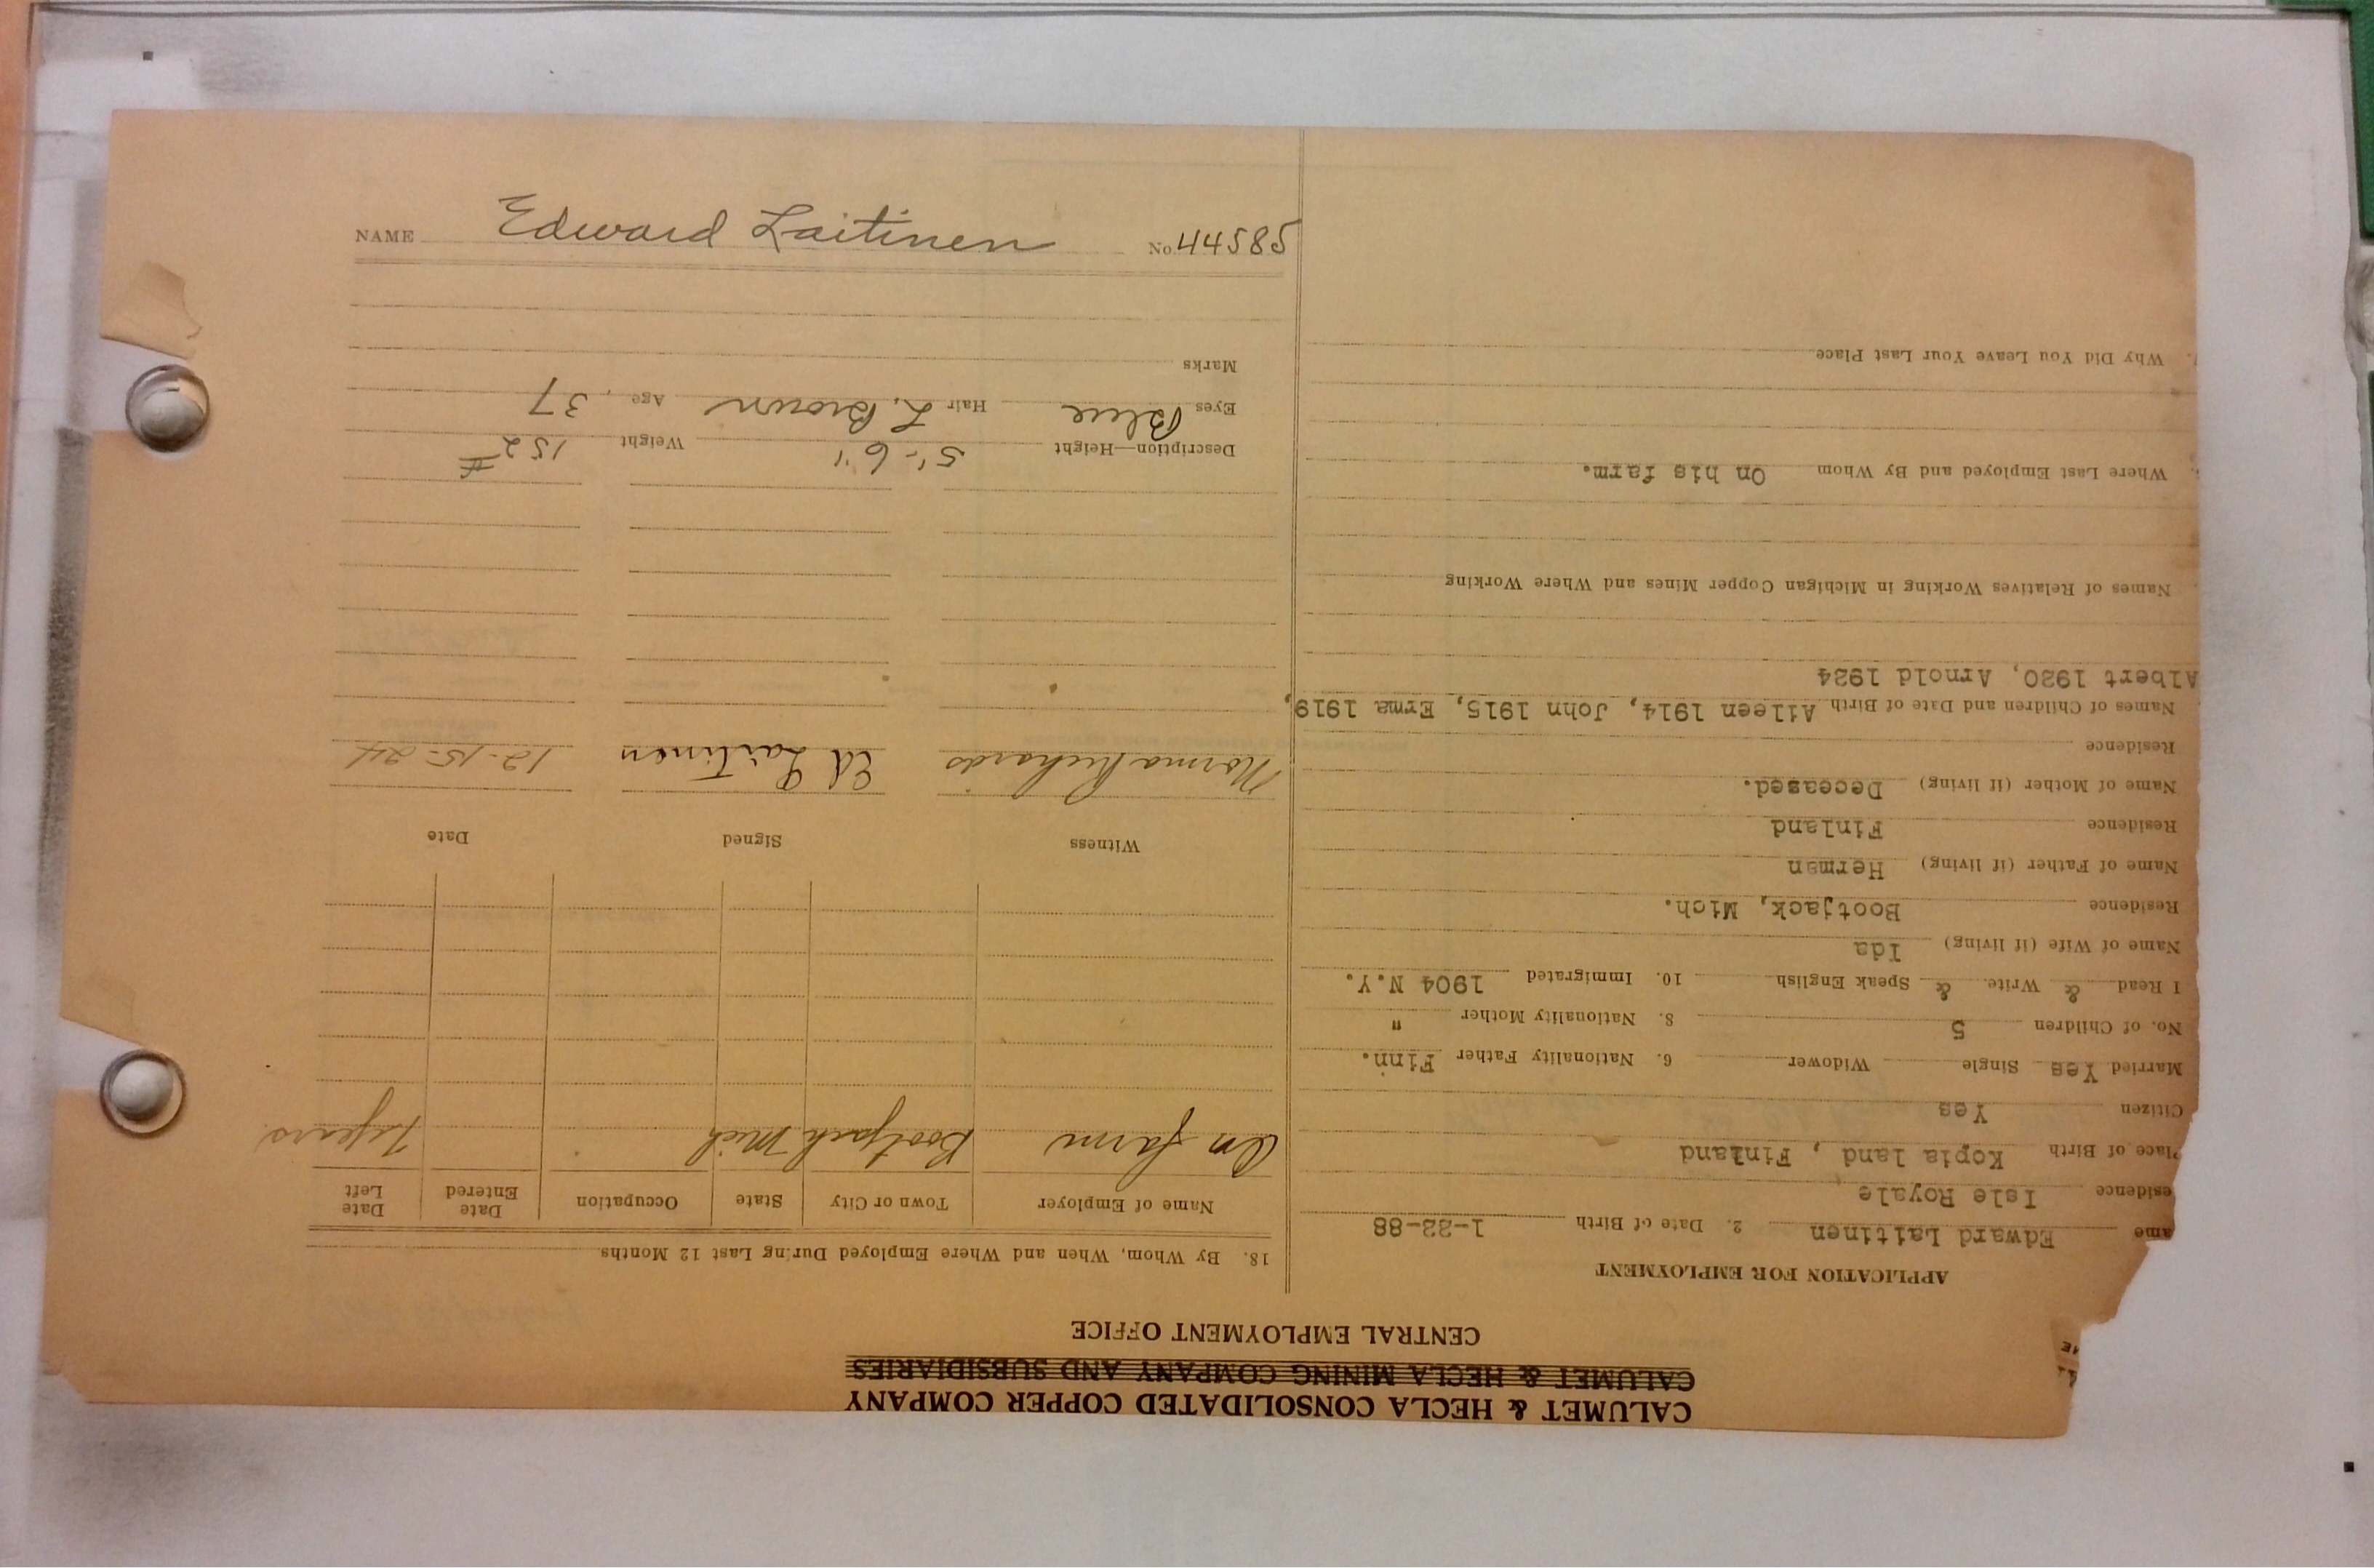 NAME Edward Laitinen No. 44585
CALUMET & HECLA CONSOLIDATED COPPER COMPANY
CALUMET & HECLA MINING COMPANY AND SUBSIDIARIES
CENTRAL EMPLOYMENT OFFICE
APPLICATION FOR EMPLOYMENT
ame Edward Laitinen 2. Date of Birth 1-22-88
esidence Isle Royale
Place of Birth Kopia land, Finland
Citizen Yes
Married Yes Single Widower 6. Nationality Father Finn.
No. of Children 5 8. Nationality Mother "
I Read & Write & Speak English 10. Immigrated 1904 N.Y.
Name of Wife (if living) Ida
Residence Bootjack, Mich.
Name of Father (if living) Herman
Residence Finland
Name of Mother (if living) Deceased.
Residence
Names of Children and Date of Birth Aileen 1914, John 1915, Erma 1919,
Albert 1920, Arnold 1924
Names of Relatives Working in Michigan Copper Mines and Where Working
Where Last Employed and By Whom On his farm.
Why Did You Leave Your Last Place
18. By Whom, When and Where Employed During Last 12 Months
Name of Employer Town or City State Occupation Date Entered Date Left
On farm Bootjack Mich 7 years
Witness Signed Date
Norma Richards Ed Laitinen 12-15-24
Description—Height 5'-6" Weight 152 #
Eyes Blue Hair L. Brown Age 37
Marks